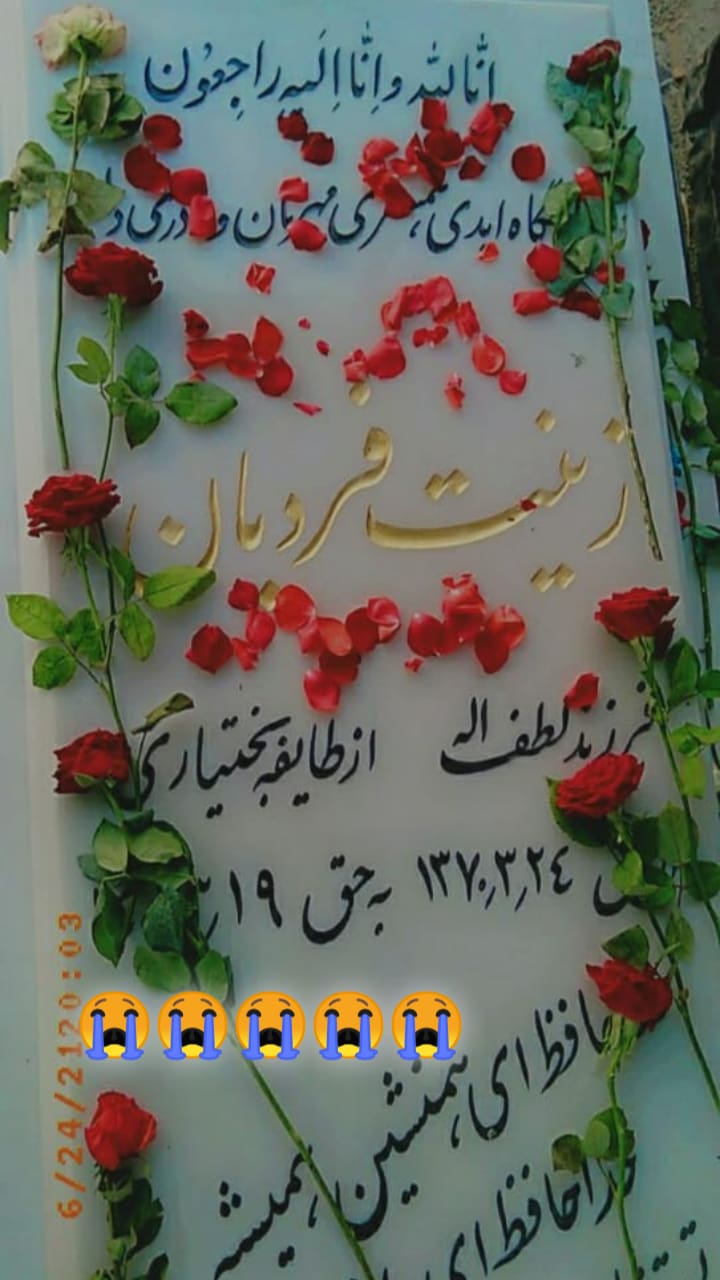 انّا لله و اِنّا اِلَیهِ راجِعوُن
ابدی، همسری مهربان و مادری
زینت فردیان
فرزند لطف اله از طایفه بختیاری
۱۳۷۰٫۳٫۲٤ به حق ۱۹
حافظ ای همنشین همیشه
خداحافظ ای
6/24/2120:03